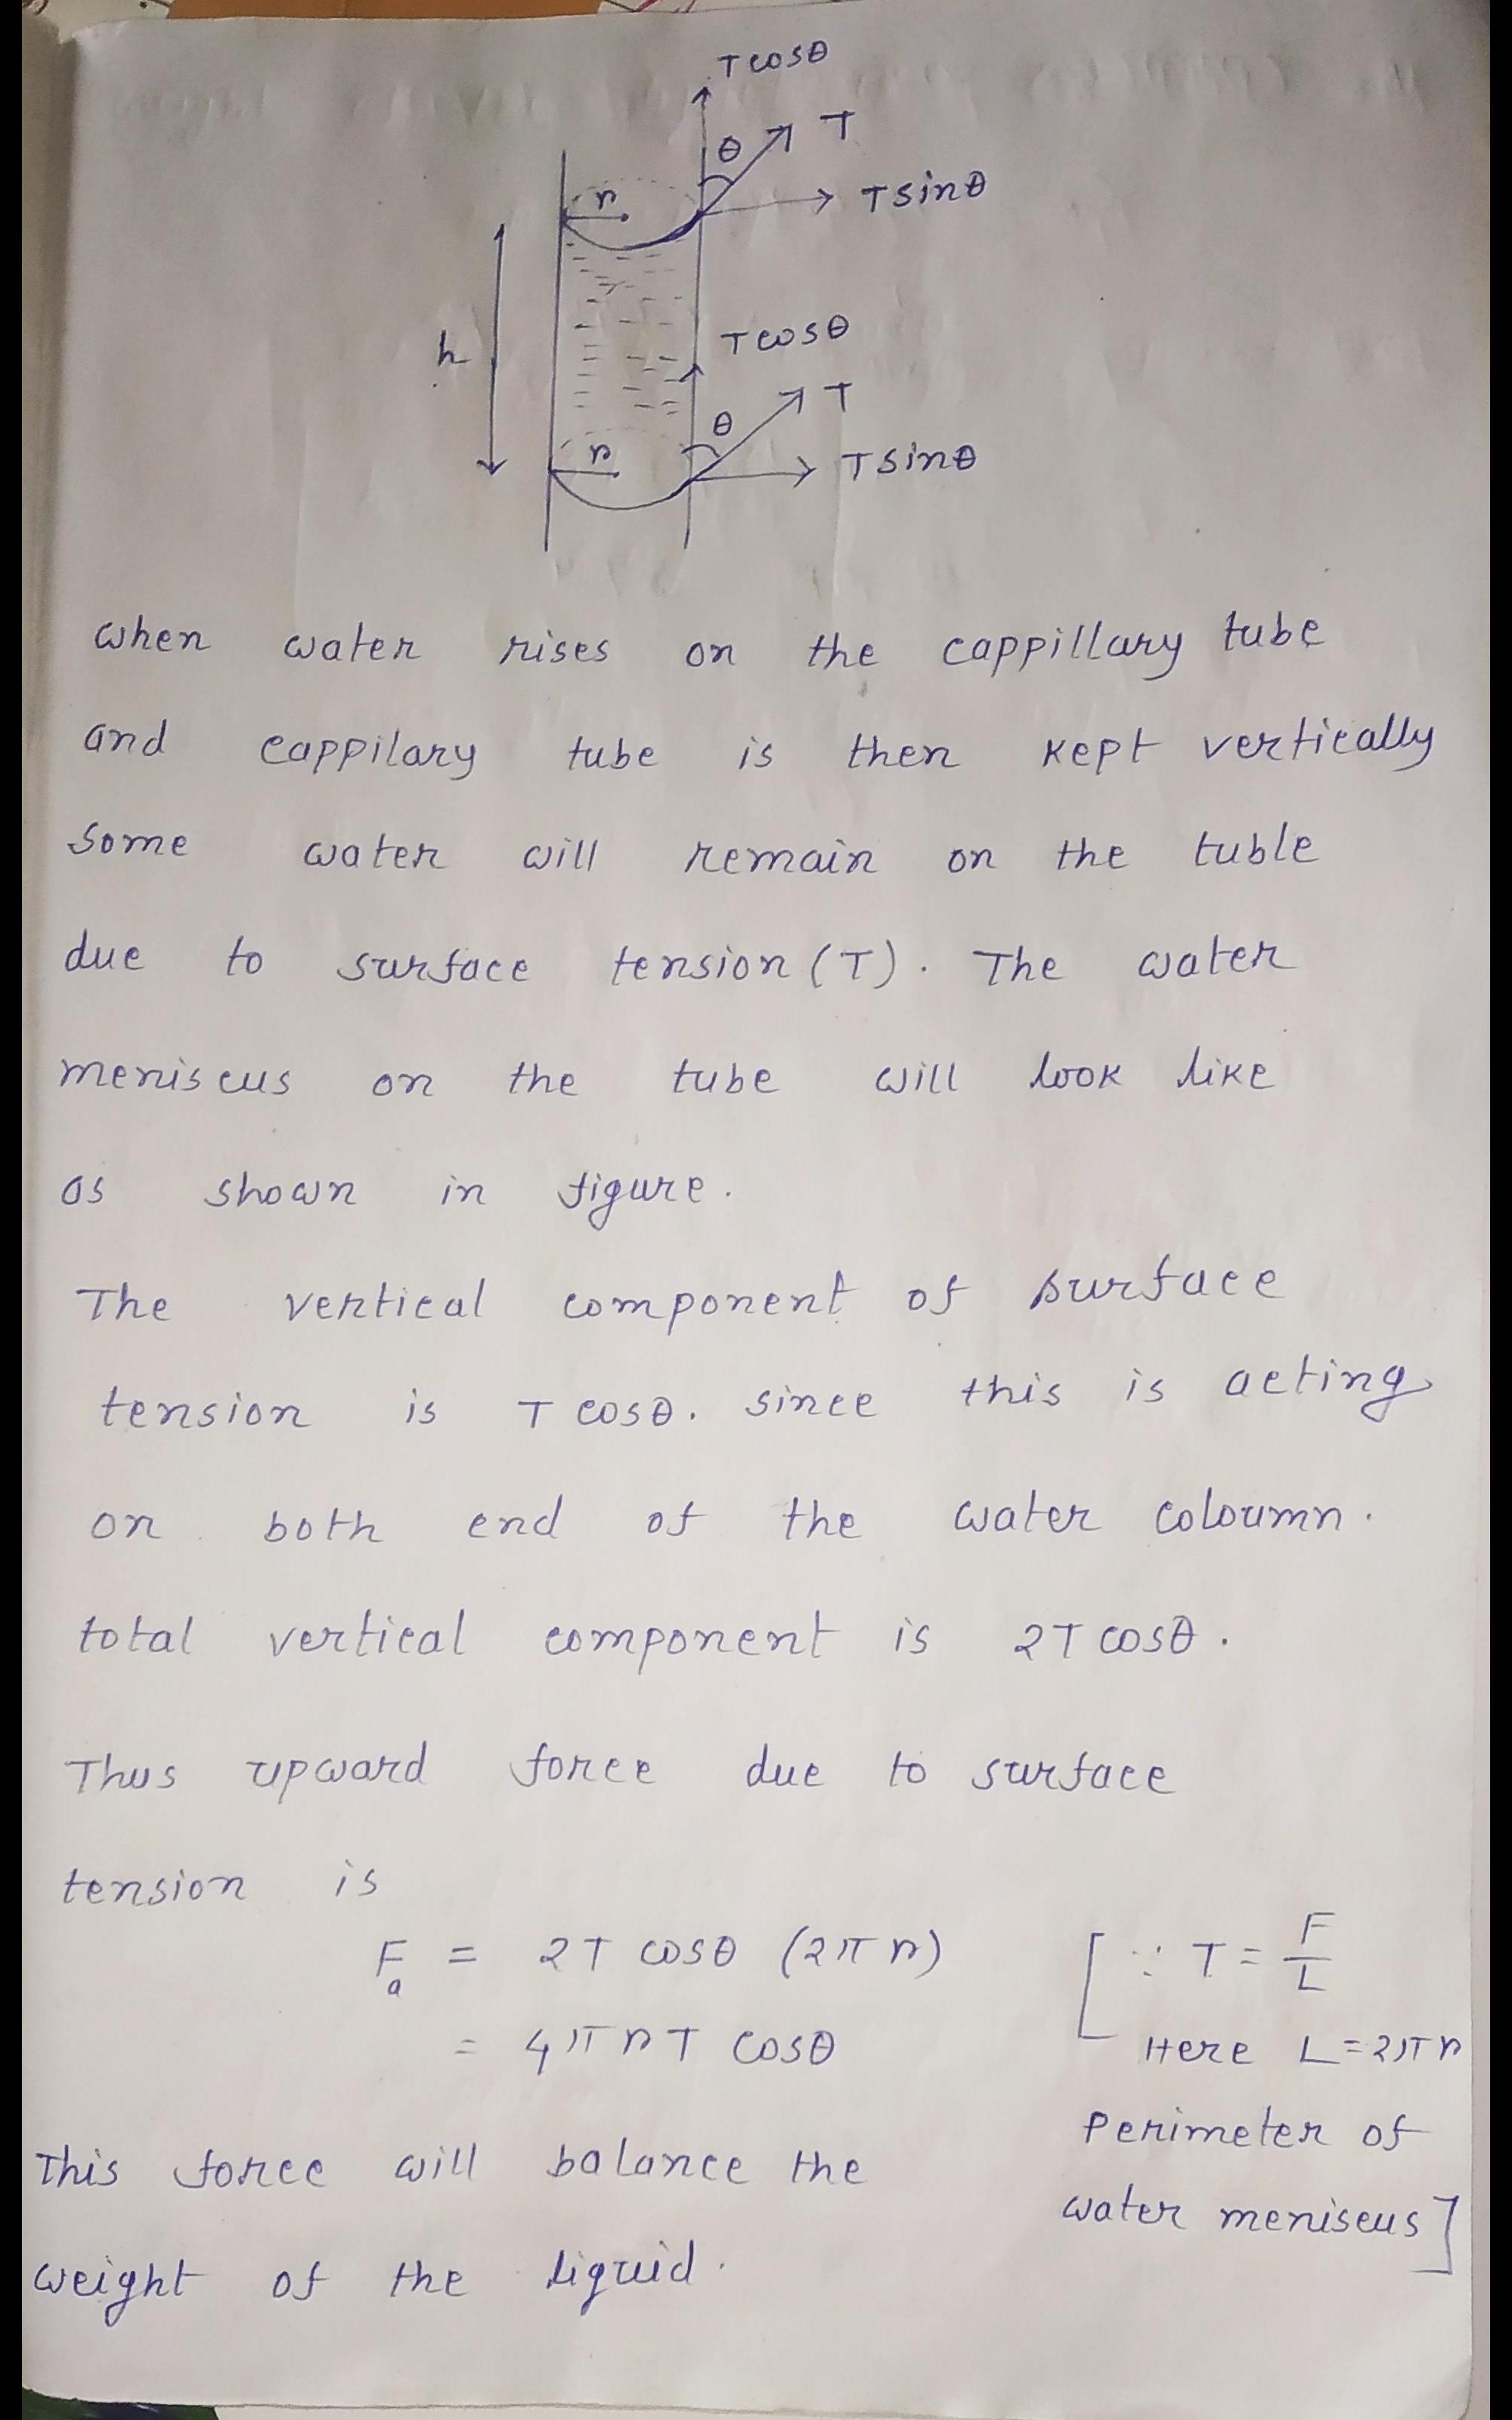 T cosθ
θ
T
r
T sinθ
h
T cosθ
θ
T
r
T sinθ
when water rises on the cappillary tube
and cappilary tube is then kept vertically
some water will remain on the tuble
due to surface tension (T). The water
meniscus on the tube will look like
as shown in figure.
The vertical component of surface
tension is T cosθ. since this is acting
on both end of the water coloumn.
total vertical component is 2T cosθ.
Thus upward force due to surface
tension is
Fa = 2T cosθ (2πr) [∵ T = F/L
= 4πrT cosθ Here L = 2πr
Perimeter of
This force will balance the
water meniscus]
weight of the liquid.